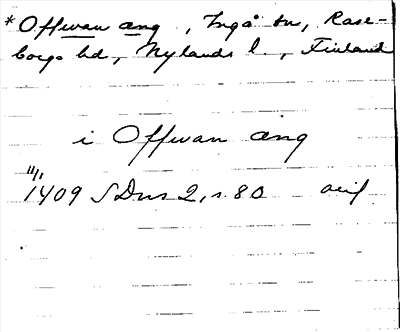 * Offwan ang, Ingå sn, Rase-
borgs hd, Nylands l., Finland
i Offwan ang
11/1
1409 SDns 2, s. 80 avf